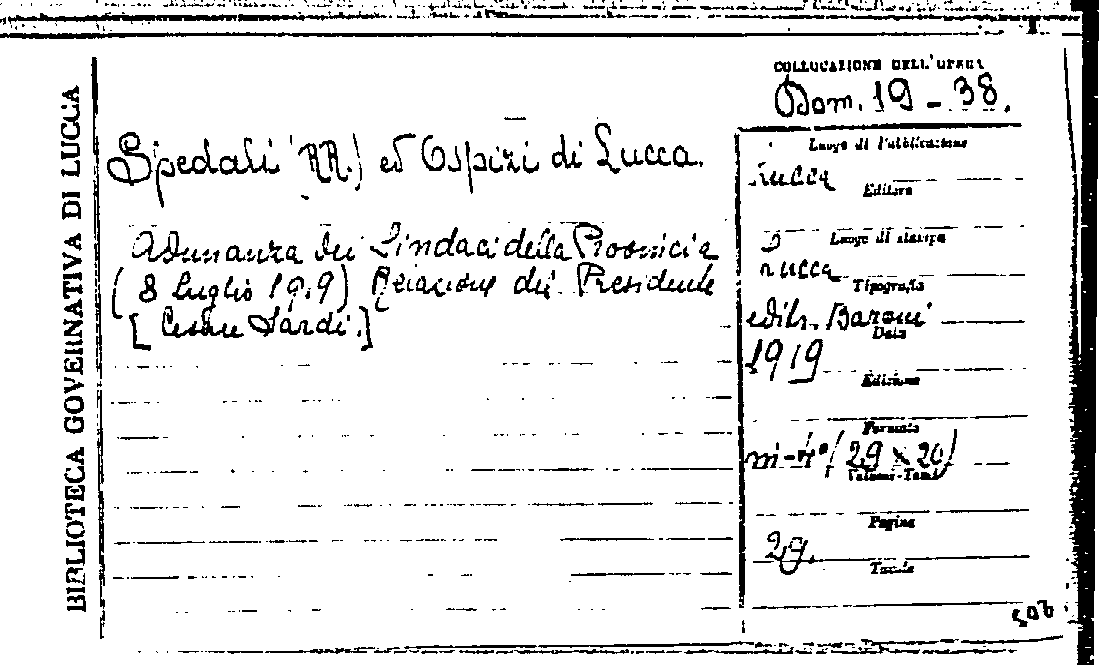 BIBLIOTECA GOVERNATIVA DI LUCCA
COLLOCAZIONE DELL'OPERA
Dom. 19 - 38.
Spedali (RR.) ed Ospizi di Lucca.
Adunanza dei Sindaci della Provincia
(8 luglio 1919) Relazione del Presidente
[Cesare Sardi.]
Luogo di Pubblicazione
Lucca
Editore
Luogo di stampa
Lucca
Tipografia
editr. Baroni
Data
1919
Edizione
Formato
in-4° (29 x 20)
Volumi-Tomi
Pagine
29.
Tavole